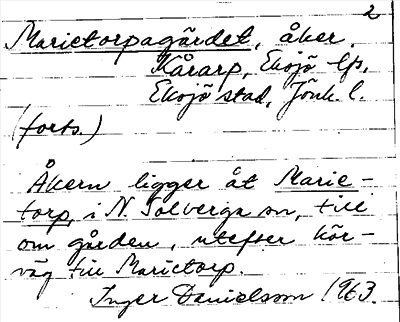 2
Marietorpagärdet, åker.
Kårarp, Eksjö lfs,
Eksjö stad, Jönk. l.
(forts.)
Åkern ligger åt Marie-
torp, i N. Solberga sn, till
om gården, utefter kör-
väg till Marietorp.
Inger Danielsson 1963.